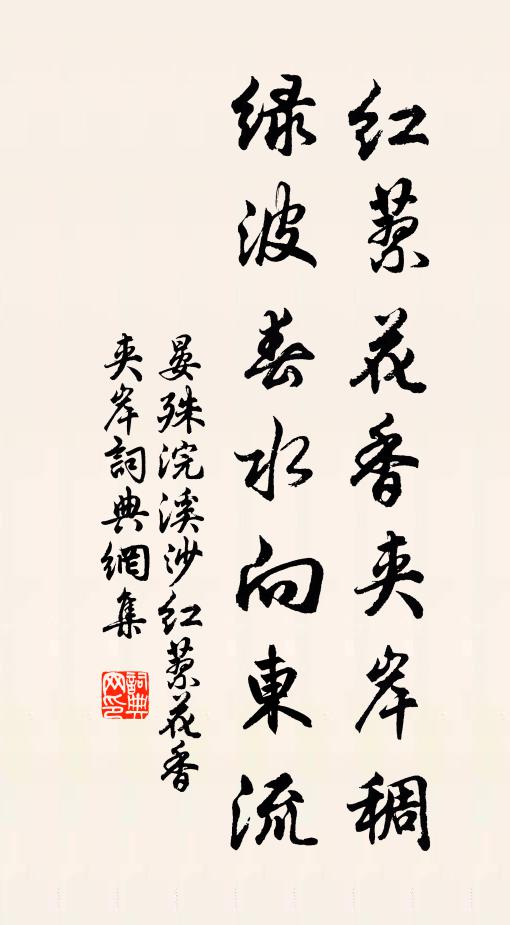 红蓼花香夹岸稠
绿波春水向東流
晏殊浣溪沙红蓼花香
夹岸詞典網集
詞典网印